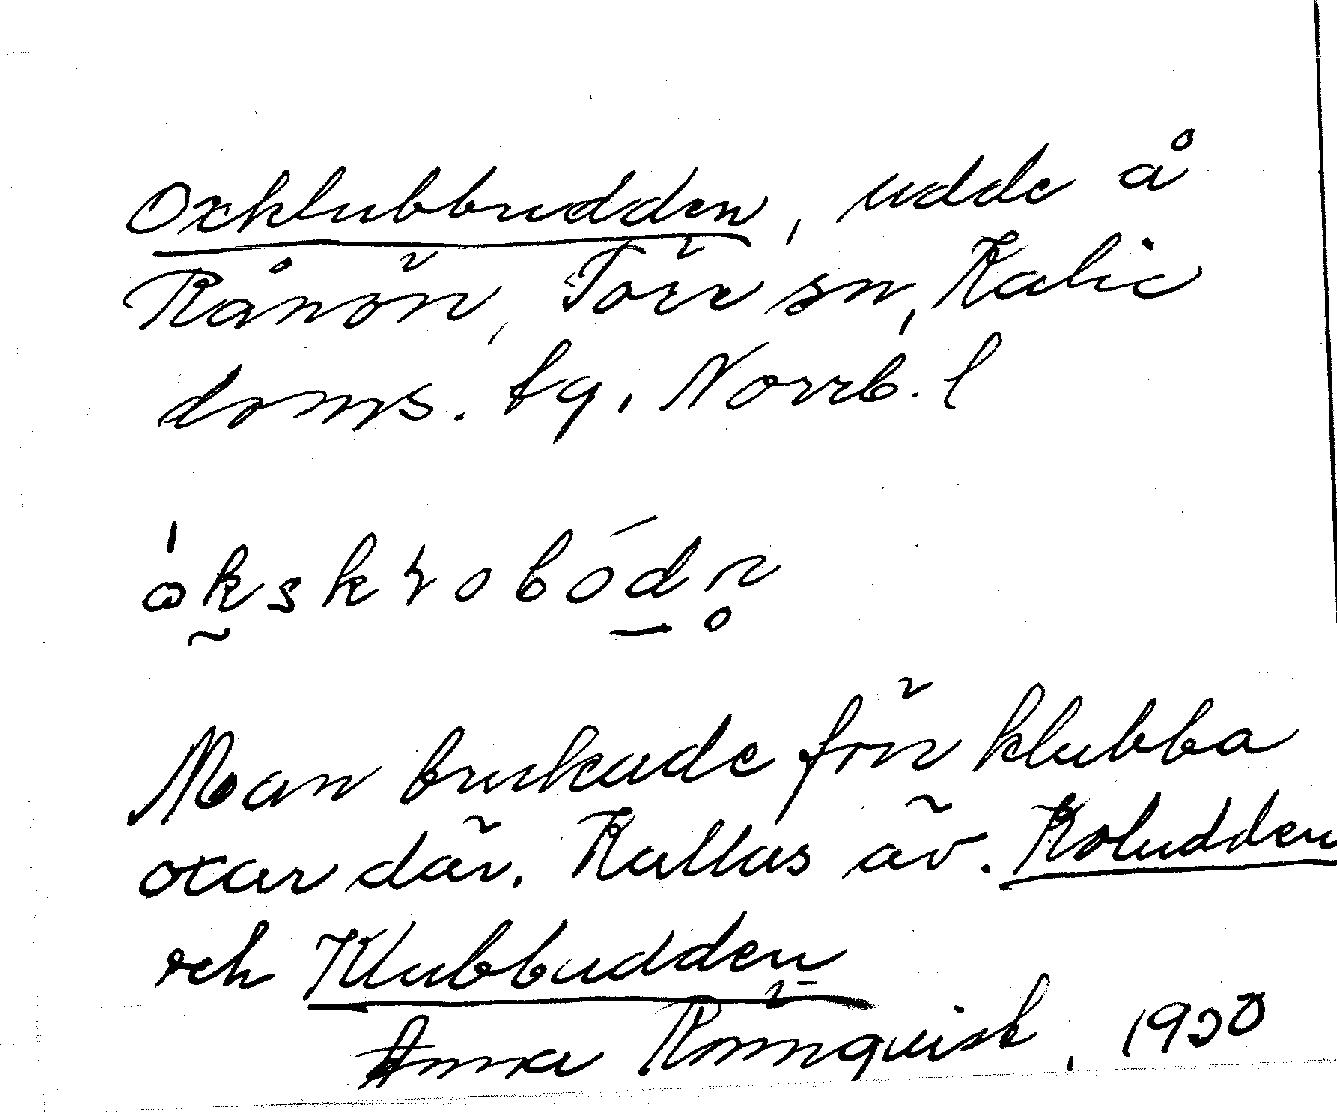 Oxklubbudden, udde å
Rånön, Töre sn, Kalix
doms. tg. Norrb. l
Man brukade förr klubba
oxar där. Kallas äv. Koludden
och Klubbudden
Anna Rönnquist, 1930